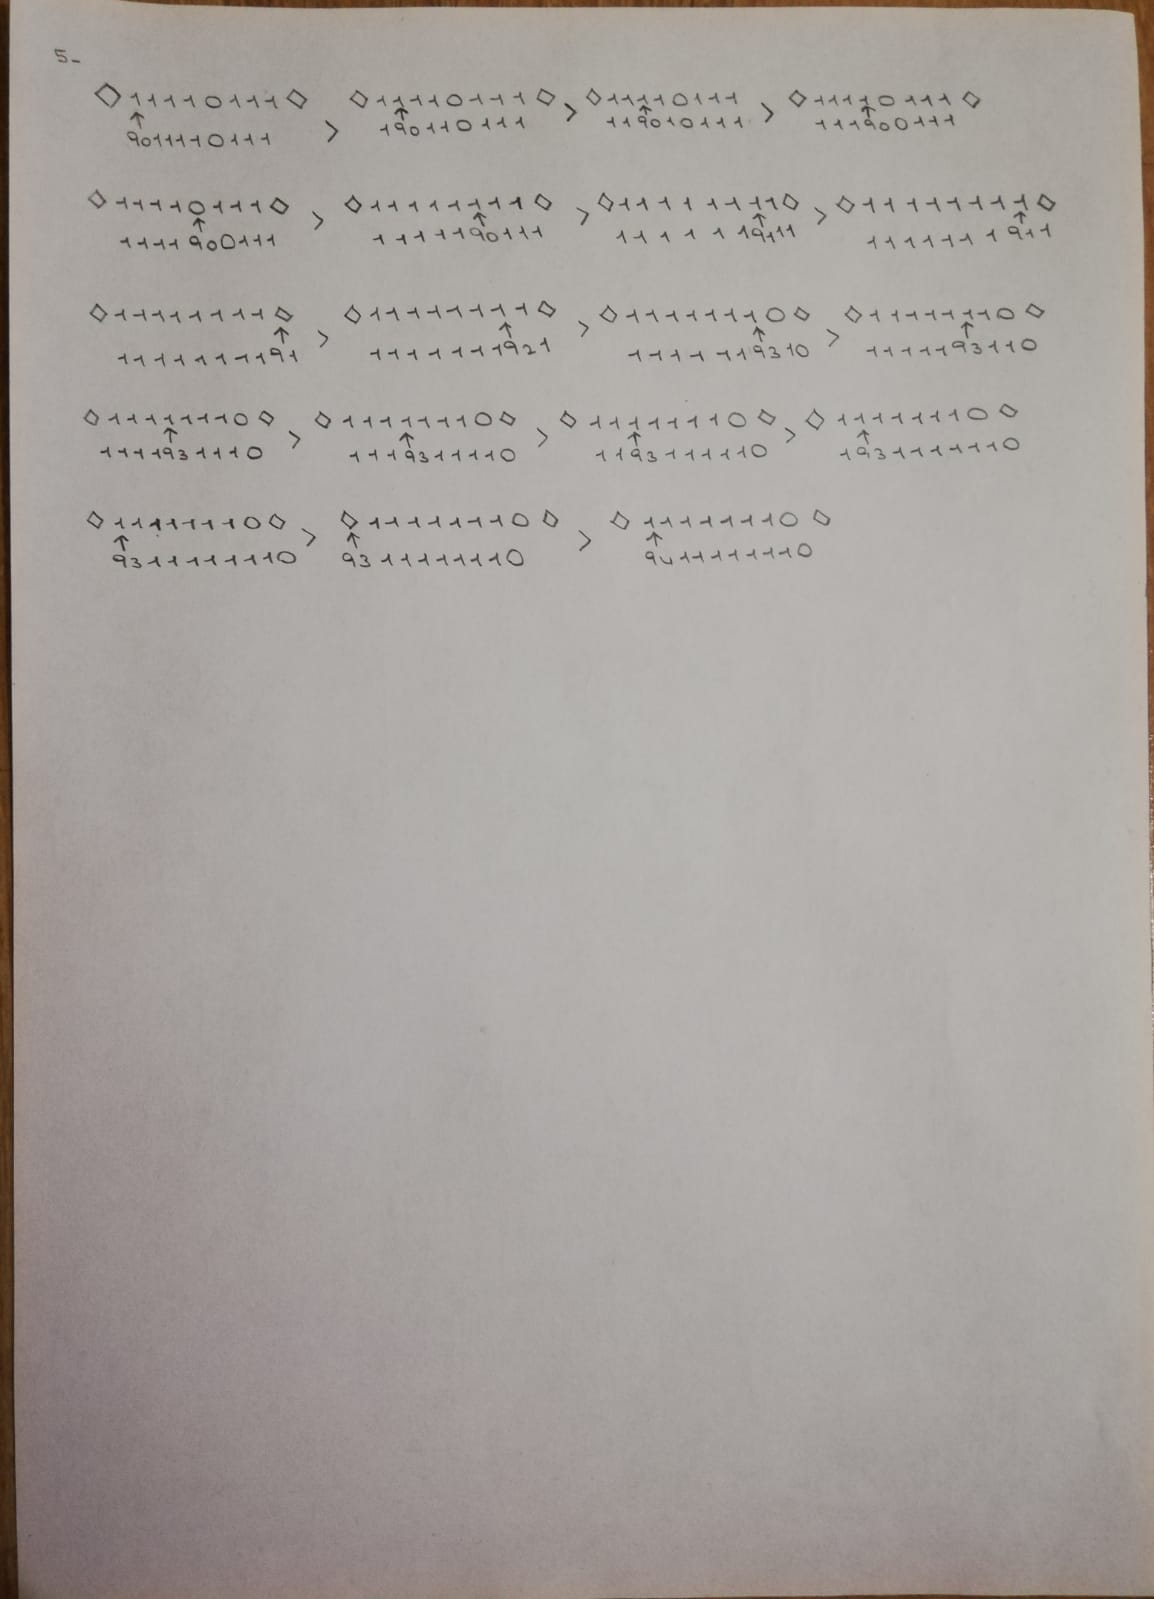 5-
◇11110111◇ ◇11110111◇ ◇11110111 ◇11110111◇
↑ ↑ ↑ ↑
q011110111 > 1q0110111 > 11q010111 > 111q00111
◇11110111◇ ◇11111111◇ ◇11111111◇ ◇111111111◇
↑ ↑ ↑ ↑
1111q00111 > 11111q0111 > 111111q111 > 1111111q11
◇11111111◇ ◇11111111◇ ◇11111110◇ ◇11111110◇
↑ ↑ ↑ ↑
11111111q1 > 1111111q21 > 111111q310 > 11111q3110
◇11111110◇ ◇11111110◇ ◇11111110◇ ◇11111110◇
↑ ↑ ↑ ↑
1111q31110 > 111q311110 > 11q3111110 > 1q31111110
◇11111110◇ ◇11111110◇ ◇11111110◇
↑ ↑ ↑
q3111111110 > q311111110 > q4111111110